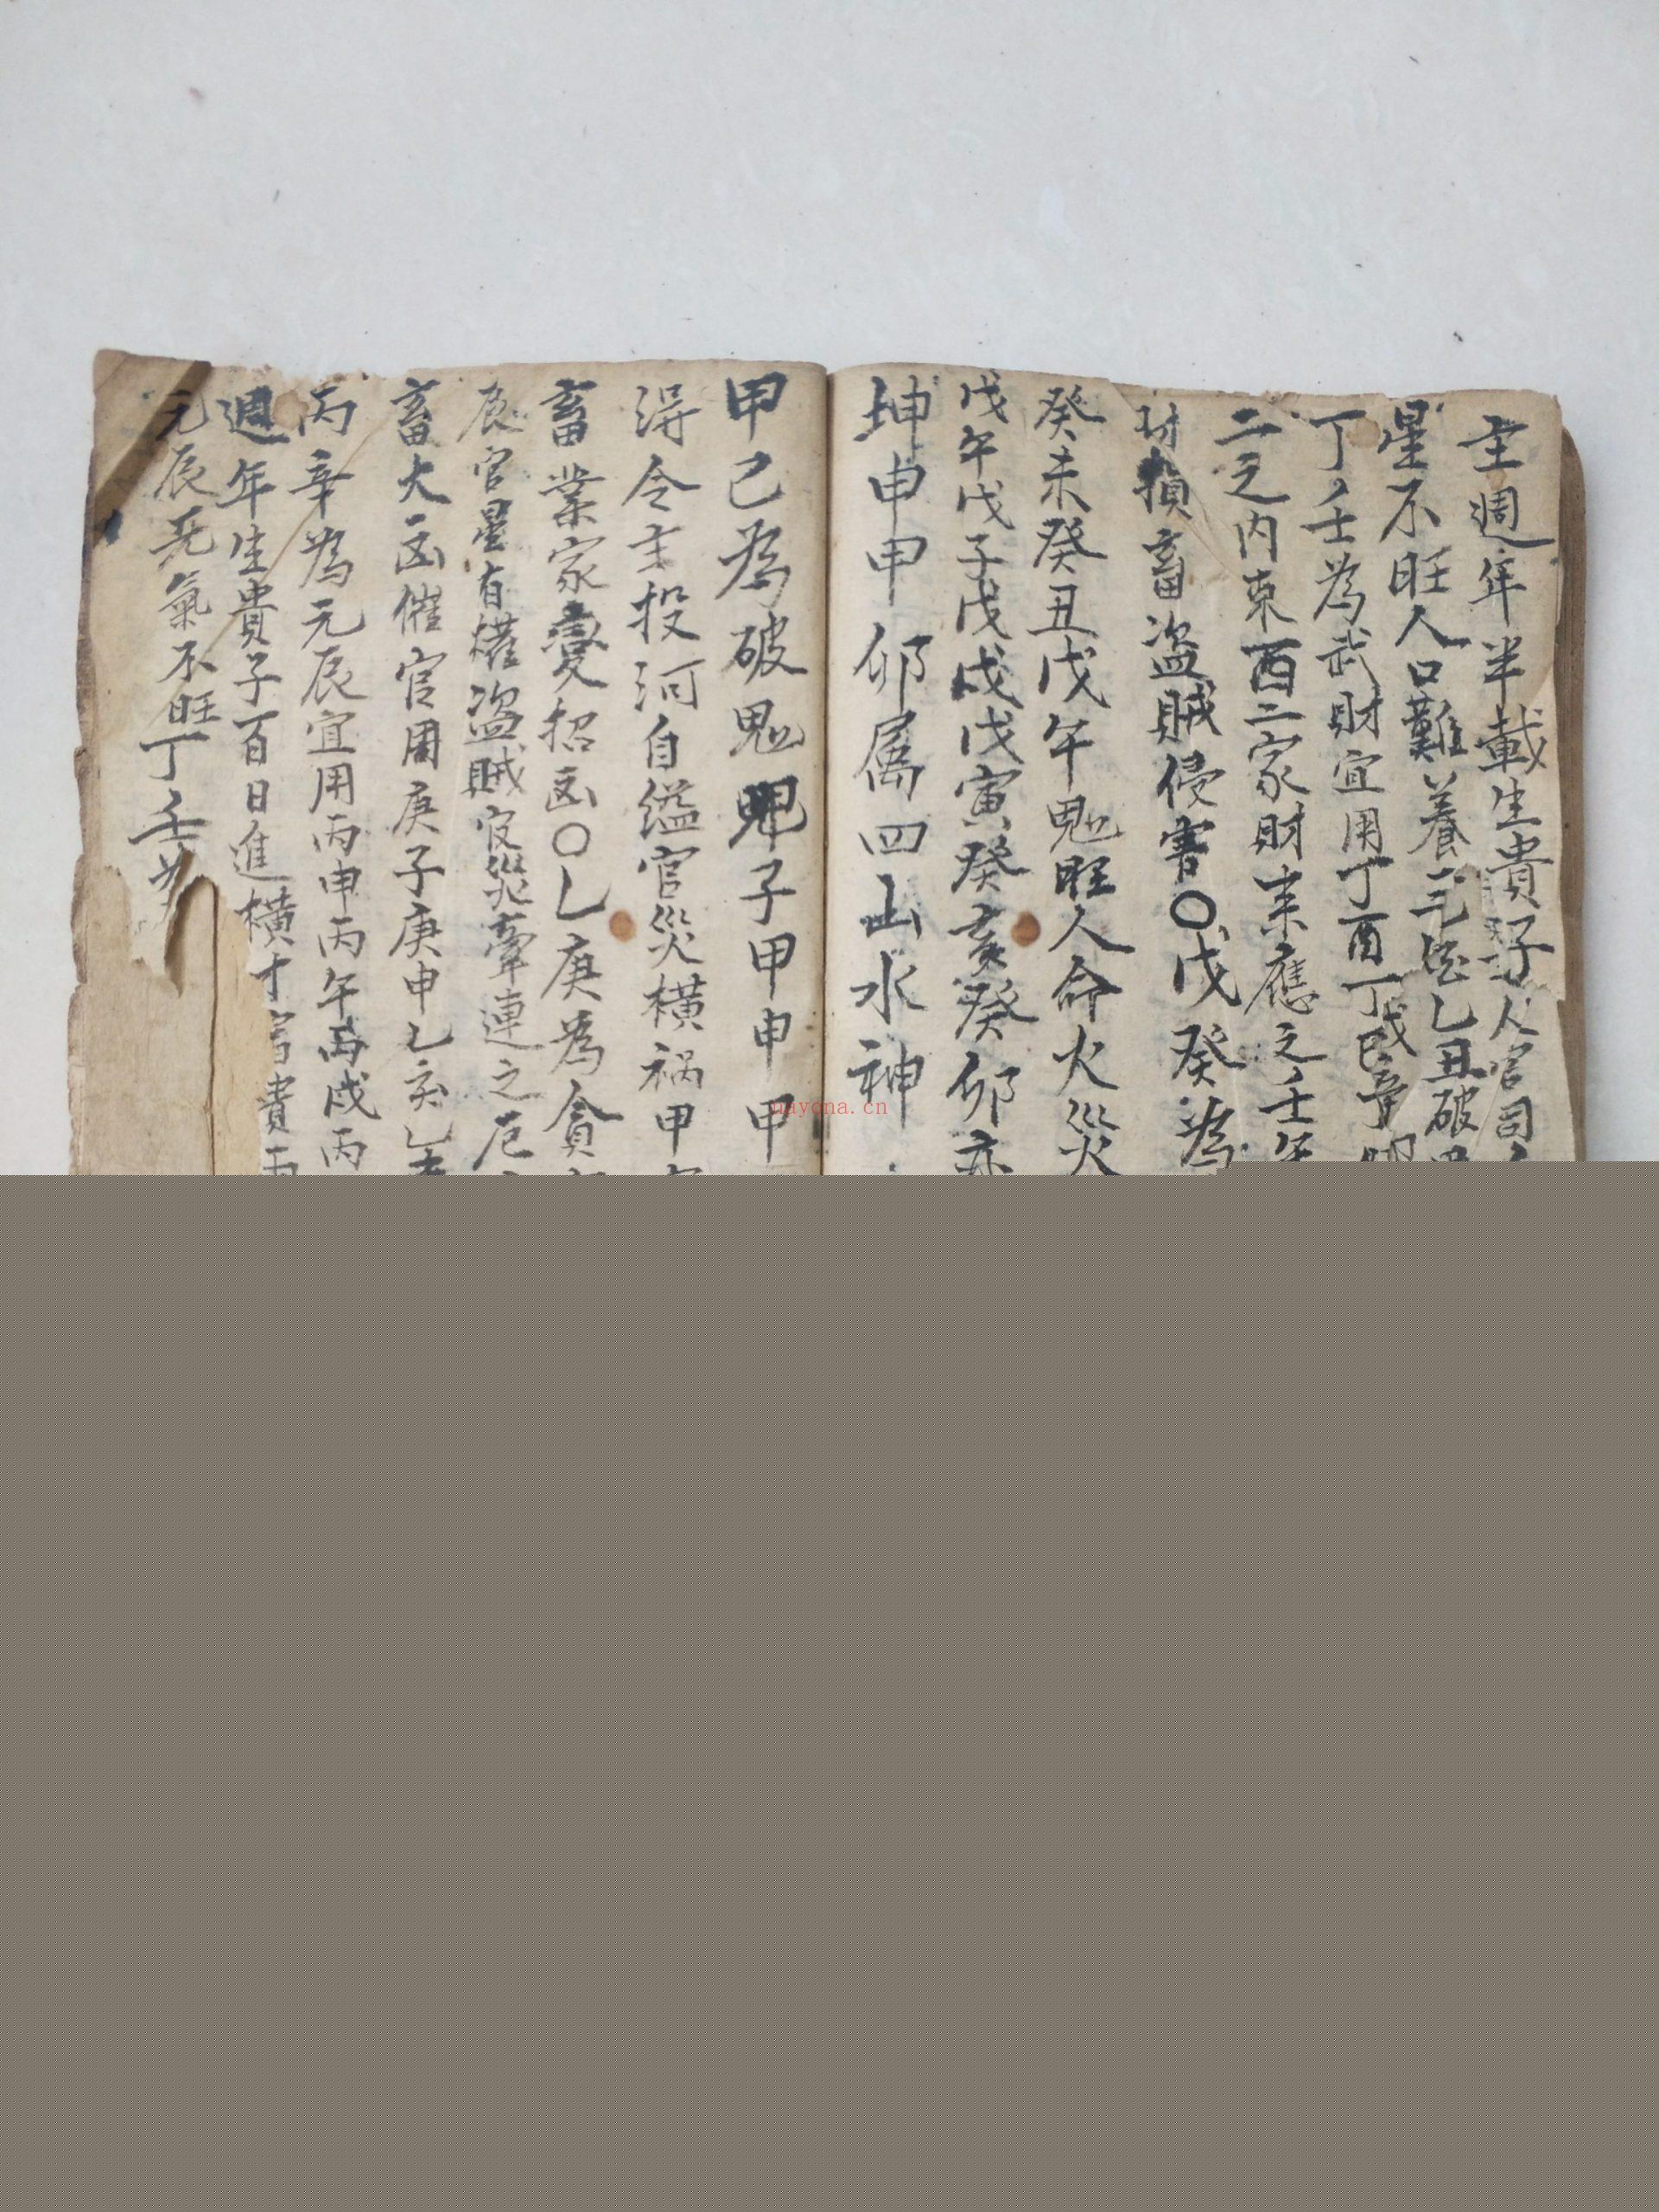 主週年半載生貴子人官司
星不旺人口難養乙丑破
丁壬為武財宜用丁酉丁巳
二之内東西二家財来應之壬午
財損畜盗賊侵害〇戊癸為
癸未癸丑戊午鬼旺人命火災
戊午戊子戊戌戊寅癸亥癸卯
坤申甲卯属四山水神
甲己為破鬼甲子甲申甲
得令主投河自縊官災横禍甲
畜業家憂招凶〇乙庚為貪
辰官星有權盗賊官災牽連之厄
畜大凶催官用庚子庚申乙亥乙
丙辛為元辰宜用丙申丙午丙戌丙
週年生貴子百日進横才富貴
元辰死氣不旺丁壬為
nayona.cn